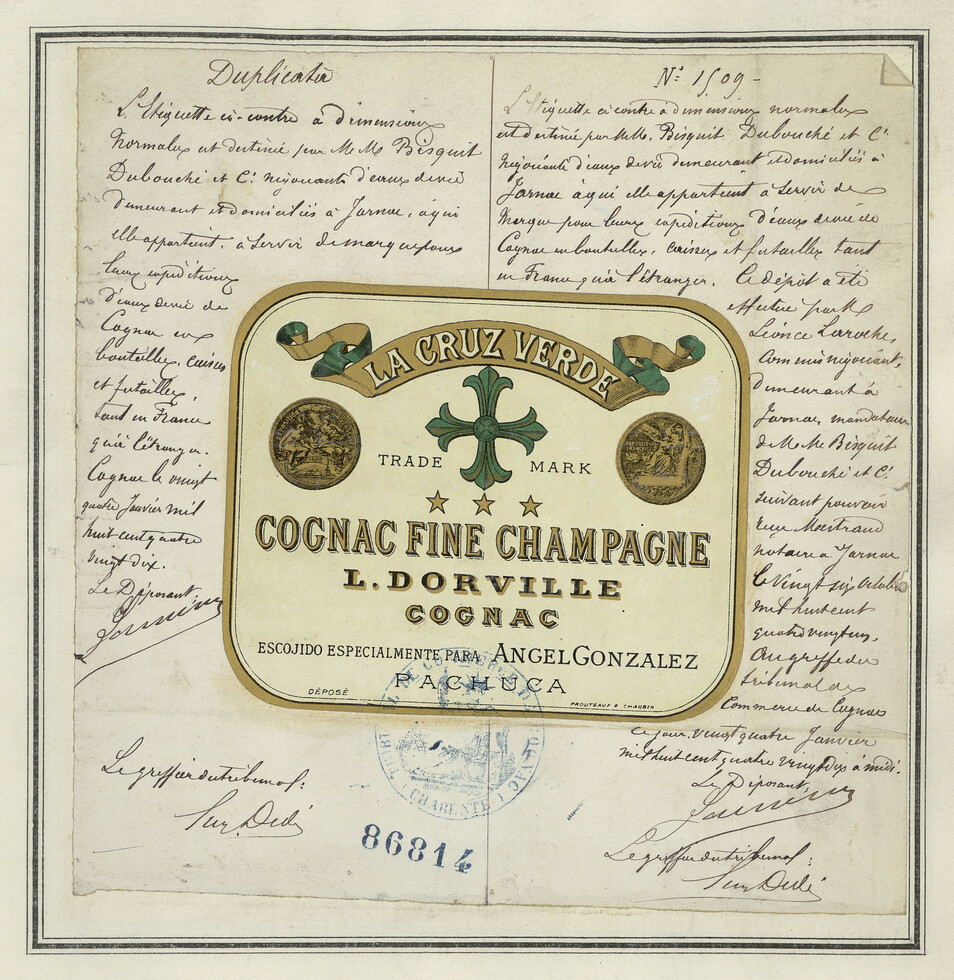 Duplicata
L'Etiquette ci-contre à dimensions
Normales est destiné par MM Bisquit
Dubouché et Cie négociants d'eaux de vie
demeurant et domiciliés à Jarnac, à qui
elle appartient, à servir de marque pour
leurs expéditions
d'eaux de vie de
Cognac en
bouteilles, caisses
et futailles,
tant en France
qu'à l'étranger.
Cognac le vingt
quatre Janvier mil
huit cent quatre
vingt dix.
Le Déposant:
Le greffier du tribunal:
No: 1509 -
L'Etiquette ci contre à dimensions normales
est destiné par MM. Bisquit Dubouché et Cie
négociants d'eaux de vie demeurant et domiciliés à
Jarnac à qui elle appartient à servir de
Marque pour leurs expéditions d'eaux de vie de
Cognac en bouteilles, caisses et futailles tant
en France qu'à l'étranger. Ce dépôt a été
effectué par M
Léonce Laroche,
Commis négociant,
demeurant à
Jarnac, mandataire
de MM Bisquit
Dubouché et Cie
suivant pouvoir
reçu
notaire à Jarnac
le vingt six octobre
mil huit cent
quatre vingt
au greffe du
tribunal de
Commerce de Cognac
ce jour, vingt quatre Janvier
mil huit cent quatre vingt dix à midi.
Le Déposant:
Le greffier du tribunal:
LA CRUZ VERDE
TRADE MARK
COGNAC FINE CHAMPAGNE
L. DORVILLE
COGNAC
ESCOJIDO ESPECIALMENTE PARA ANGEL GONZALEZ
PACHUCA
DÉPOSÉ
PROUTEAUX & CHAUBIN
TRIBAL DE COMMERCE DE COGNAC
(CHARENTE)
86814